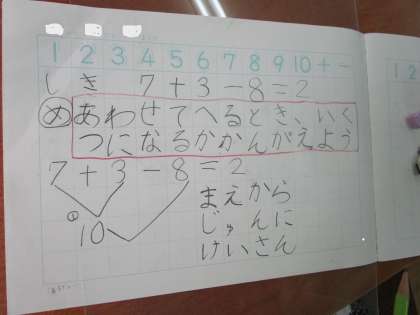 1 2 3 4 5 6 7 8 9 10 + -
しき 7+3-8=2
め あわせてへるとき、いく
つになるかかんがえよう
7+3-8=2
① 10
まえから
じゅんに
けいさん